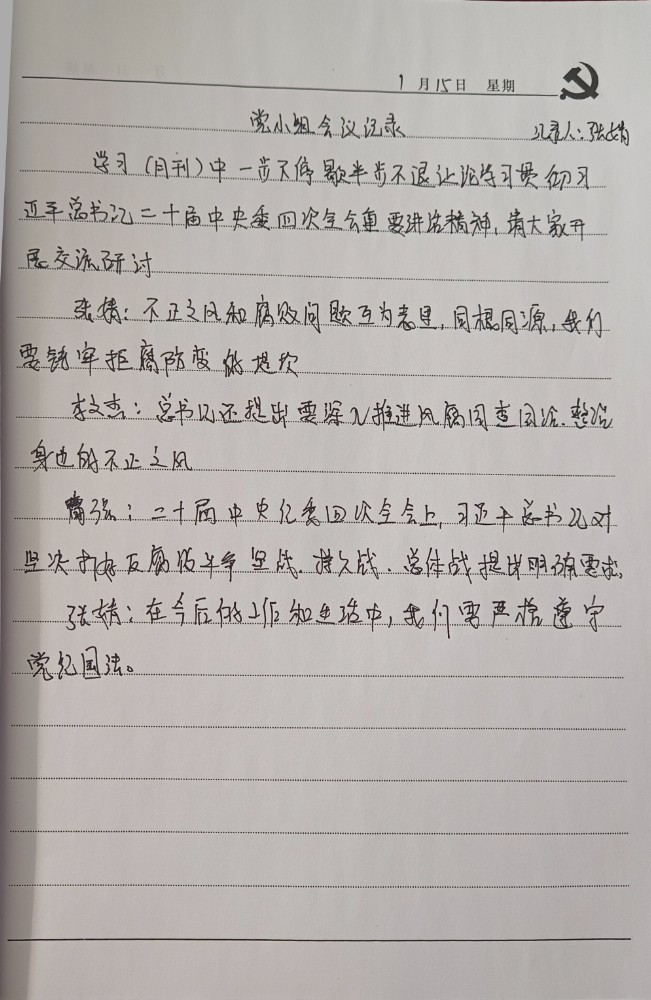 1月15日 星期
党小组会议记录 记录人：张婧
学习《月刊》中一步不停歇半步不退让论学习贯彻习
近平总书记二十届中央委四次全会重要讲话精神，请大家开
展交流研讨
张婧：不正之风和腐败问题互为表里，同根同源，我们
要铸牢拒腐防变的堤坎
李文杰：总书记还提出要深入推进风腐同查同治.整治
身边的不正之风
强：二十届中央纪委四次全会上，习近平总书记对
坚决打好反腐败斗争坚战.持久战.总体战提出明确要求，
张婧：在今后的工作和生活中，我们要严格遵守
党纪国法。